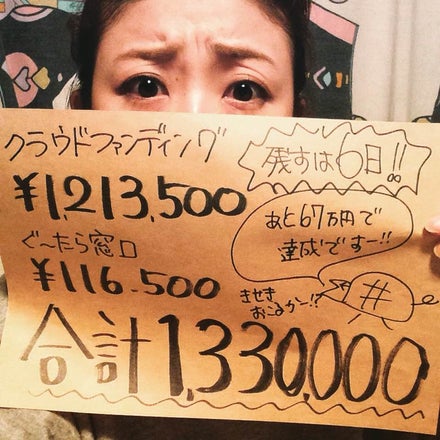 クラウドファンディング
¥1,213,500
ぐ〜たら窓口
¥116.500
合計1,330,000
残すは6日!!
あと67万円で
達成でーす!!
きせき
おこるかー!?
#